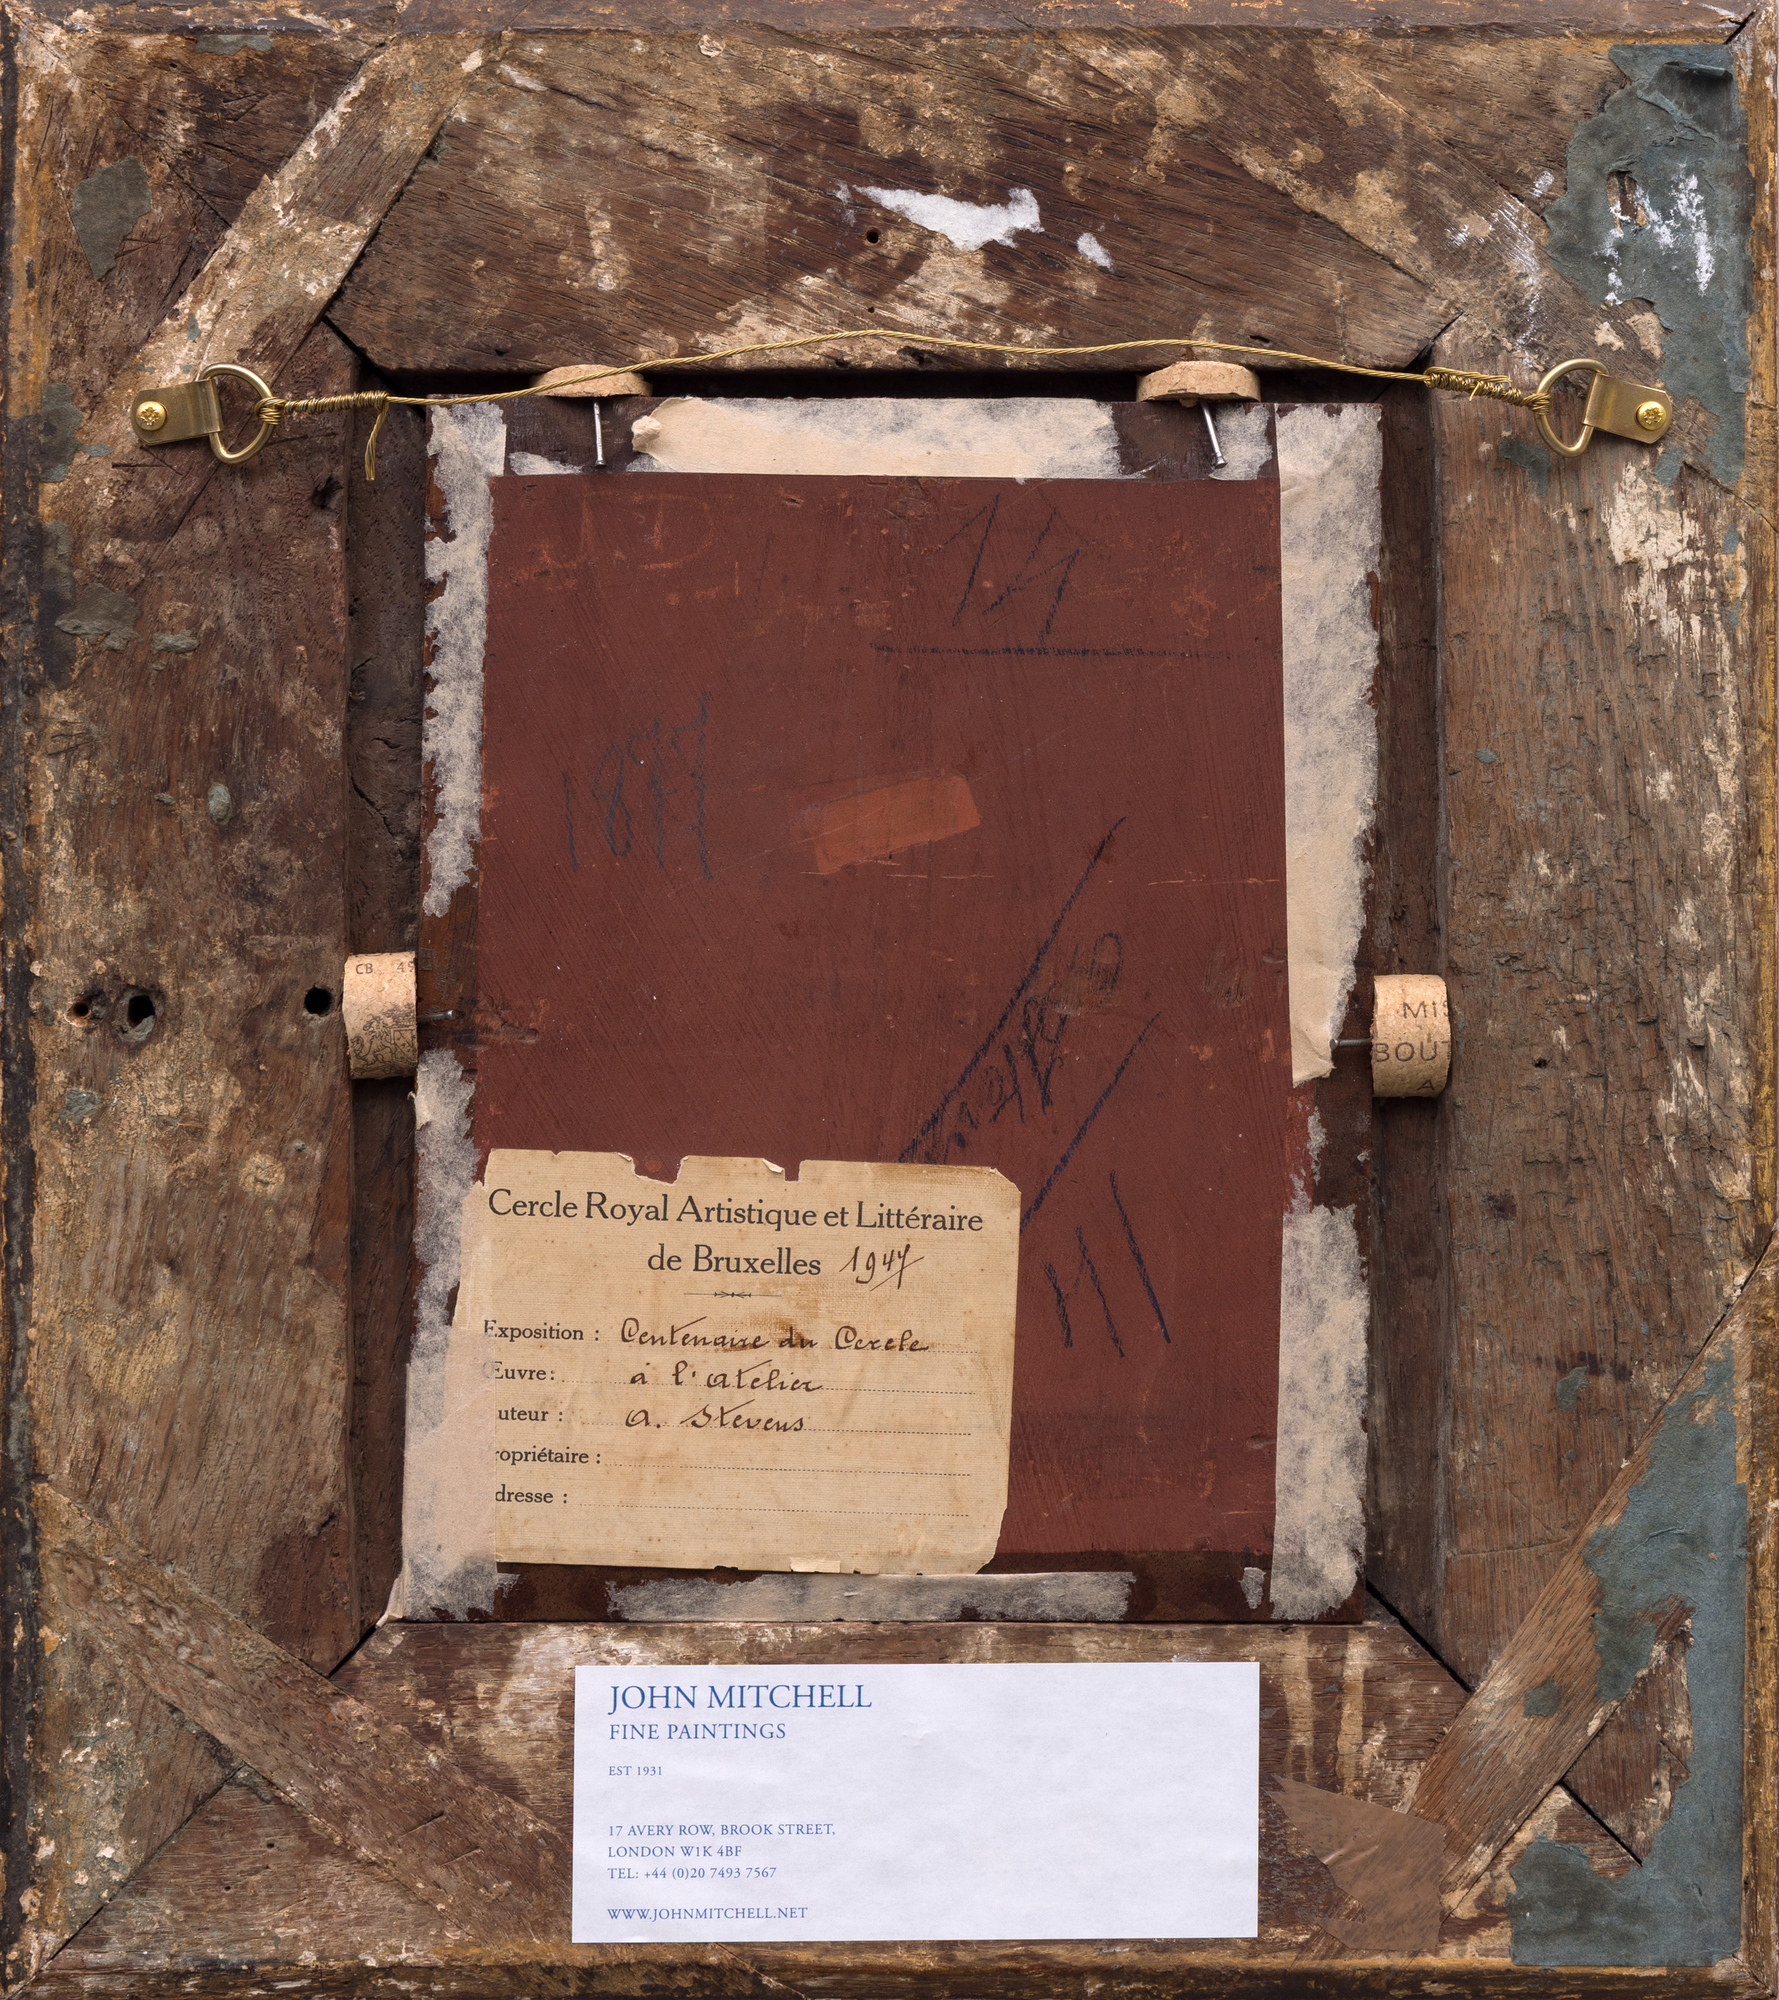 14
1877
CB. 49
MIS
BOUT
A
Cercle Royal Artistique et Littéraire
de Bruxelles 1947
Exposition : Centenaire du Cercle
Œuvre : à l'atelier
uteur : A. Stevens
ropriétaire :
dresse :
JOHN MITCHELL
FINE PAINTINGS
EST 1931
17 AVERY ROW, BROOK STREET,
LONDON W1K 4BF
TEL: +44 (0)20 7493 7567
WWW.JOHNMITCHELL.NET